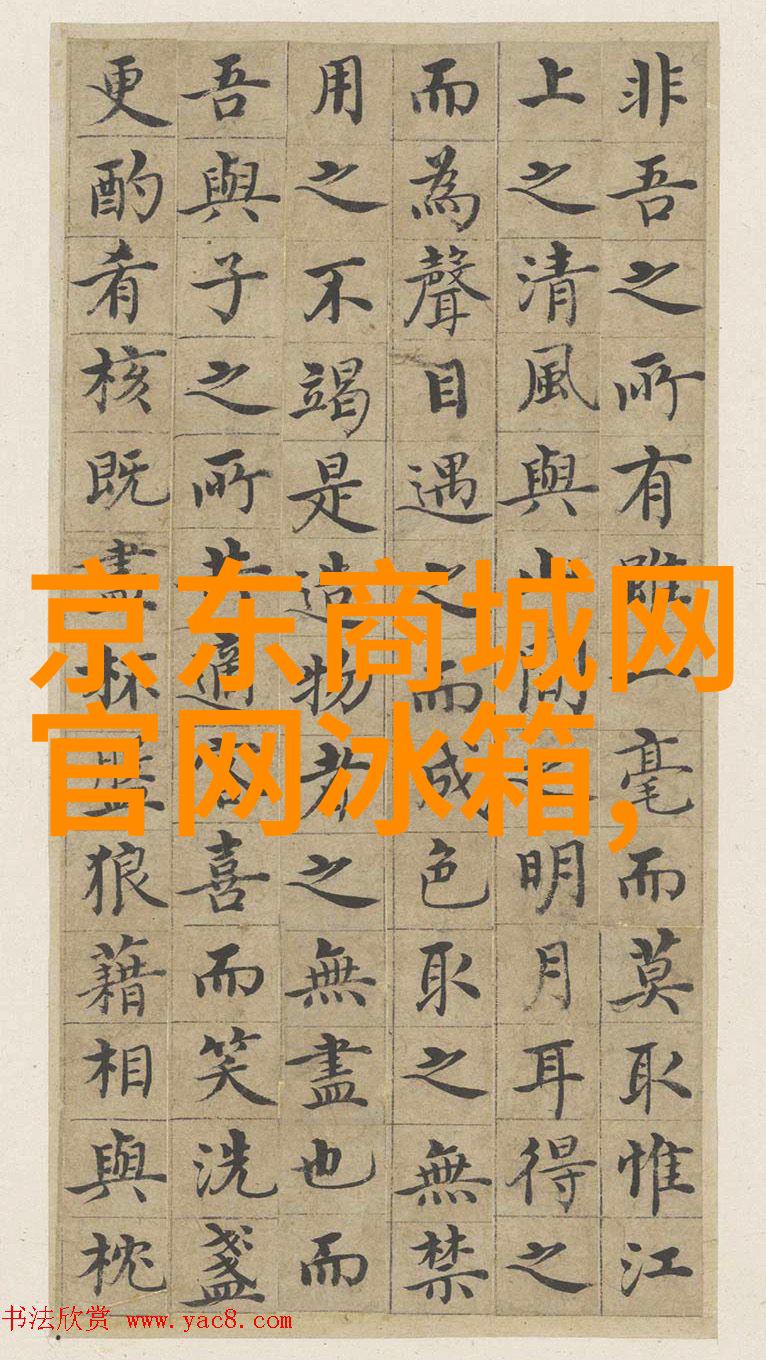 非吾之所有雖一毫而莫取惟江
上之清風與山間之明月耳得之
而為聲目遇之而成色取之無禁
用之不竭是造物者之無盡也而
吾與子之所共適客喜而笑洗盞
更酌肴核既盡杯盤狼藉相與枕
京东商城网
官网冰箱,
书法欣赏 www.yac8.com